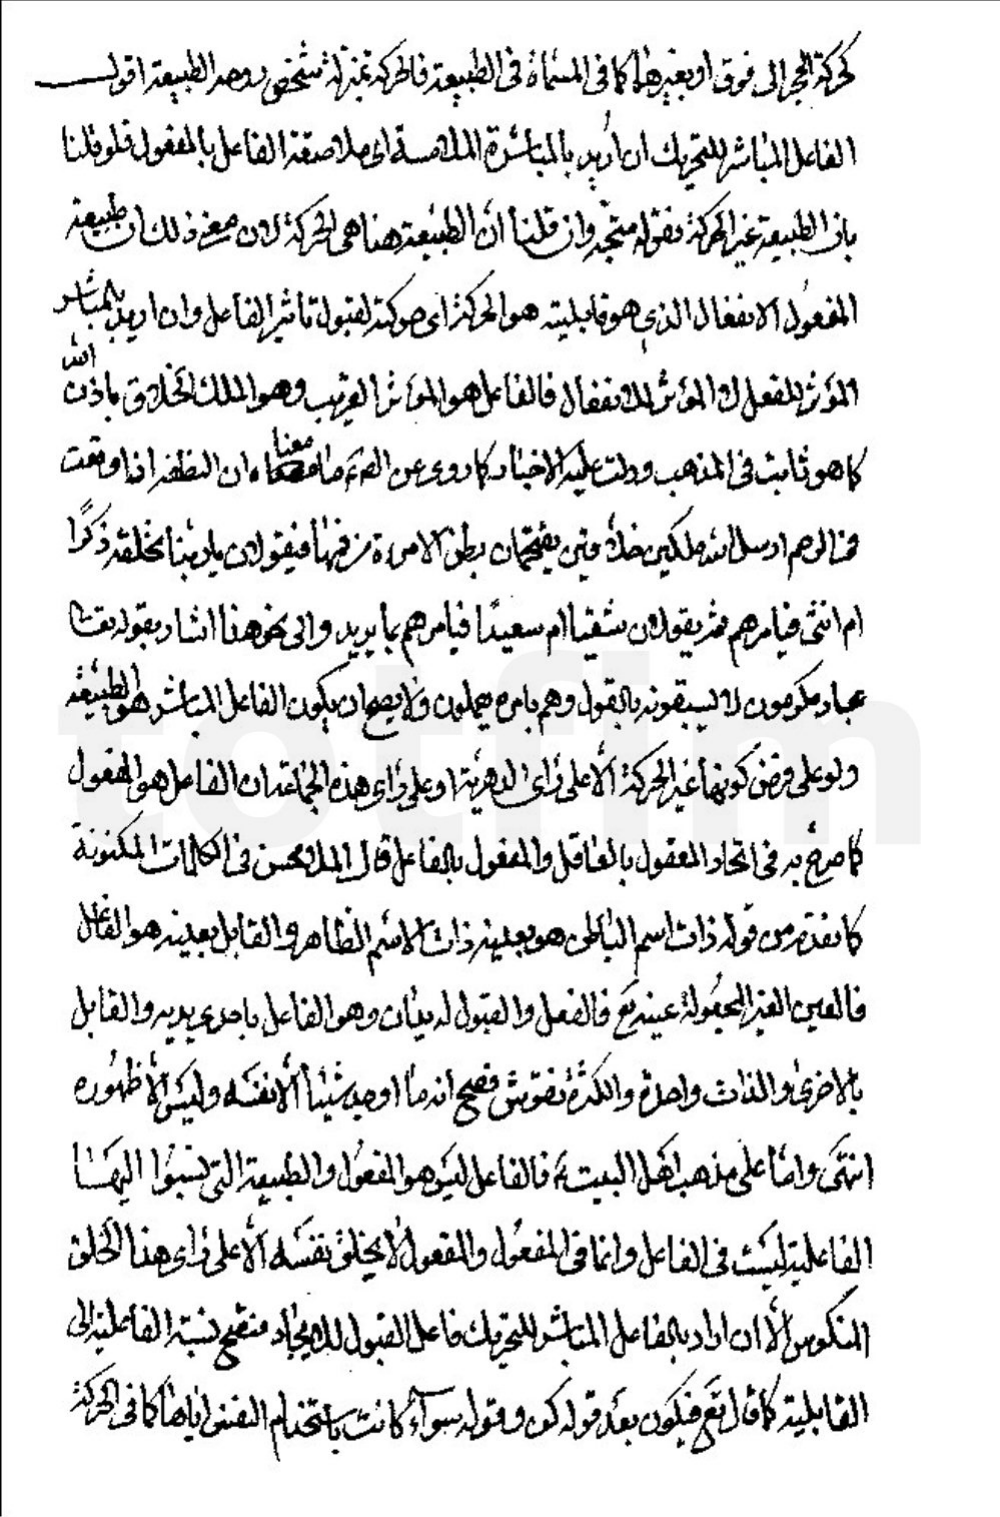 كحركة الحجر الى فوق او بغيرهما كما فى المسماة فى الطبيعة فالحركة بمنزلة شخص روحه الطبيعة اقول
الفاعل المباشر للتحريك ان أريد بالمباشرة الملامسة اى ملاصقة الفاعل بالمفعول فلو قلنا
بان الطبيعة غير الحركة فقوله متجه وان قلنا أن الطبيعة هنا هى الحركة لان معنى ذلك ان طبيعة
المفعول الانفعال الذى هو قابليته هو الحركة اى حركته لقبول تأثير الفاعل وان اريد بالمباشر
المؤثر للفعل او المؤثر للانفعال فالفاعل هو المؤثر القريب وهو الملك الخلاق باذن الله
كما هو ثابت فى المذهب ودلت عليه الاخبار كما روى عن ما معناه ان النطفة اذا وقعت
فى الرحم ارسل الله ملكين خلاقين يقتحمان بطن الامرءة من فمها فيقولان يا ربنا نخلقه ذكرًا
ام انثى فيامرهم ثم يقولان شقيا ام سعيدًا فيامرهم بما يريد والى نحو هذا اشار بقوله تعا
عباد مكرمون لا يسبقونه بالقول وهم بامره يعملون ولا يصح ان يكون الفاعل المباشر هو الطبيعة
ولو على فرض كونها غير الحركة الا على رأى الدهرية او على رأى هذه الجماعة ان الفاعل هو المفعول
كما صرح به فى اتحاد المعقول بالعاقل والمفعول بالفاعل قال الملا محسن فى الكلمات المكنونة
كما تقدم من قوله ذات اسم الباطن هو بعينه ذات الاسم الظاهر والقابل بعينه هو الفاعل
فالعين الغير المجعولة عينه تع فالفعل والقبول له يدان وهو الفاعل باحدى يديه والقابل
بالاخرى والذات واحدة والكثرة نقوش فصح انه ما اوجد شيئا الا نفسه وليس الا ظهوره
انتهى واما على مذهب اهل البيت ع فالفاعل ليس هو المفعول والطبيعة التى نسبوا اليها
الفاعلية ليست فى الفاعل وانما فى المفعول والمفعول لا يخلق نفسه الا على رأى هذا الخلق
المنكوس الا ان اراد بالفاعل المباشر للتحريك فاعل القبول للايجاد فتصح نسبة الفاعلية الى
القابلية كما قال تع فيكون بعد قوله كن وقوله سواء كانت باستخدام النفس اياها كما فى الحركة